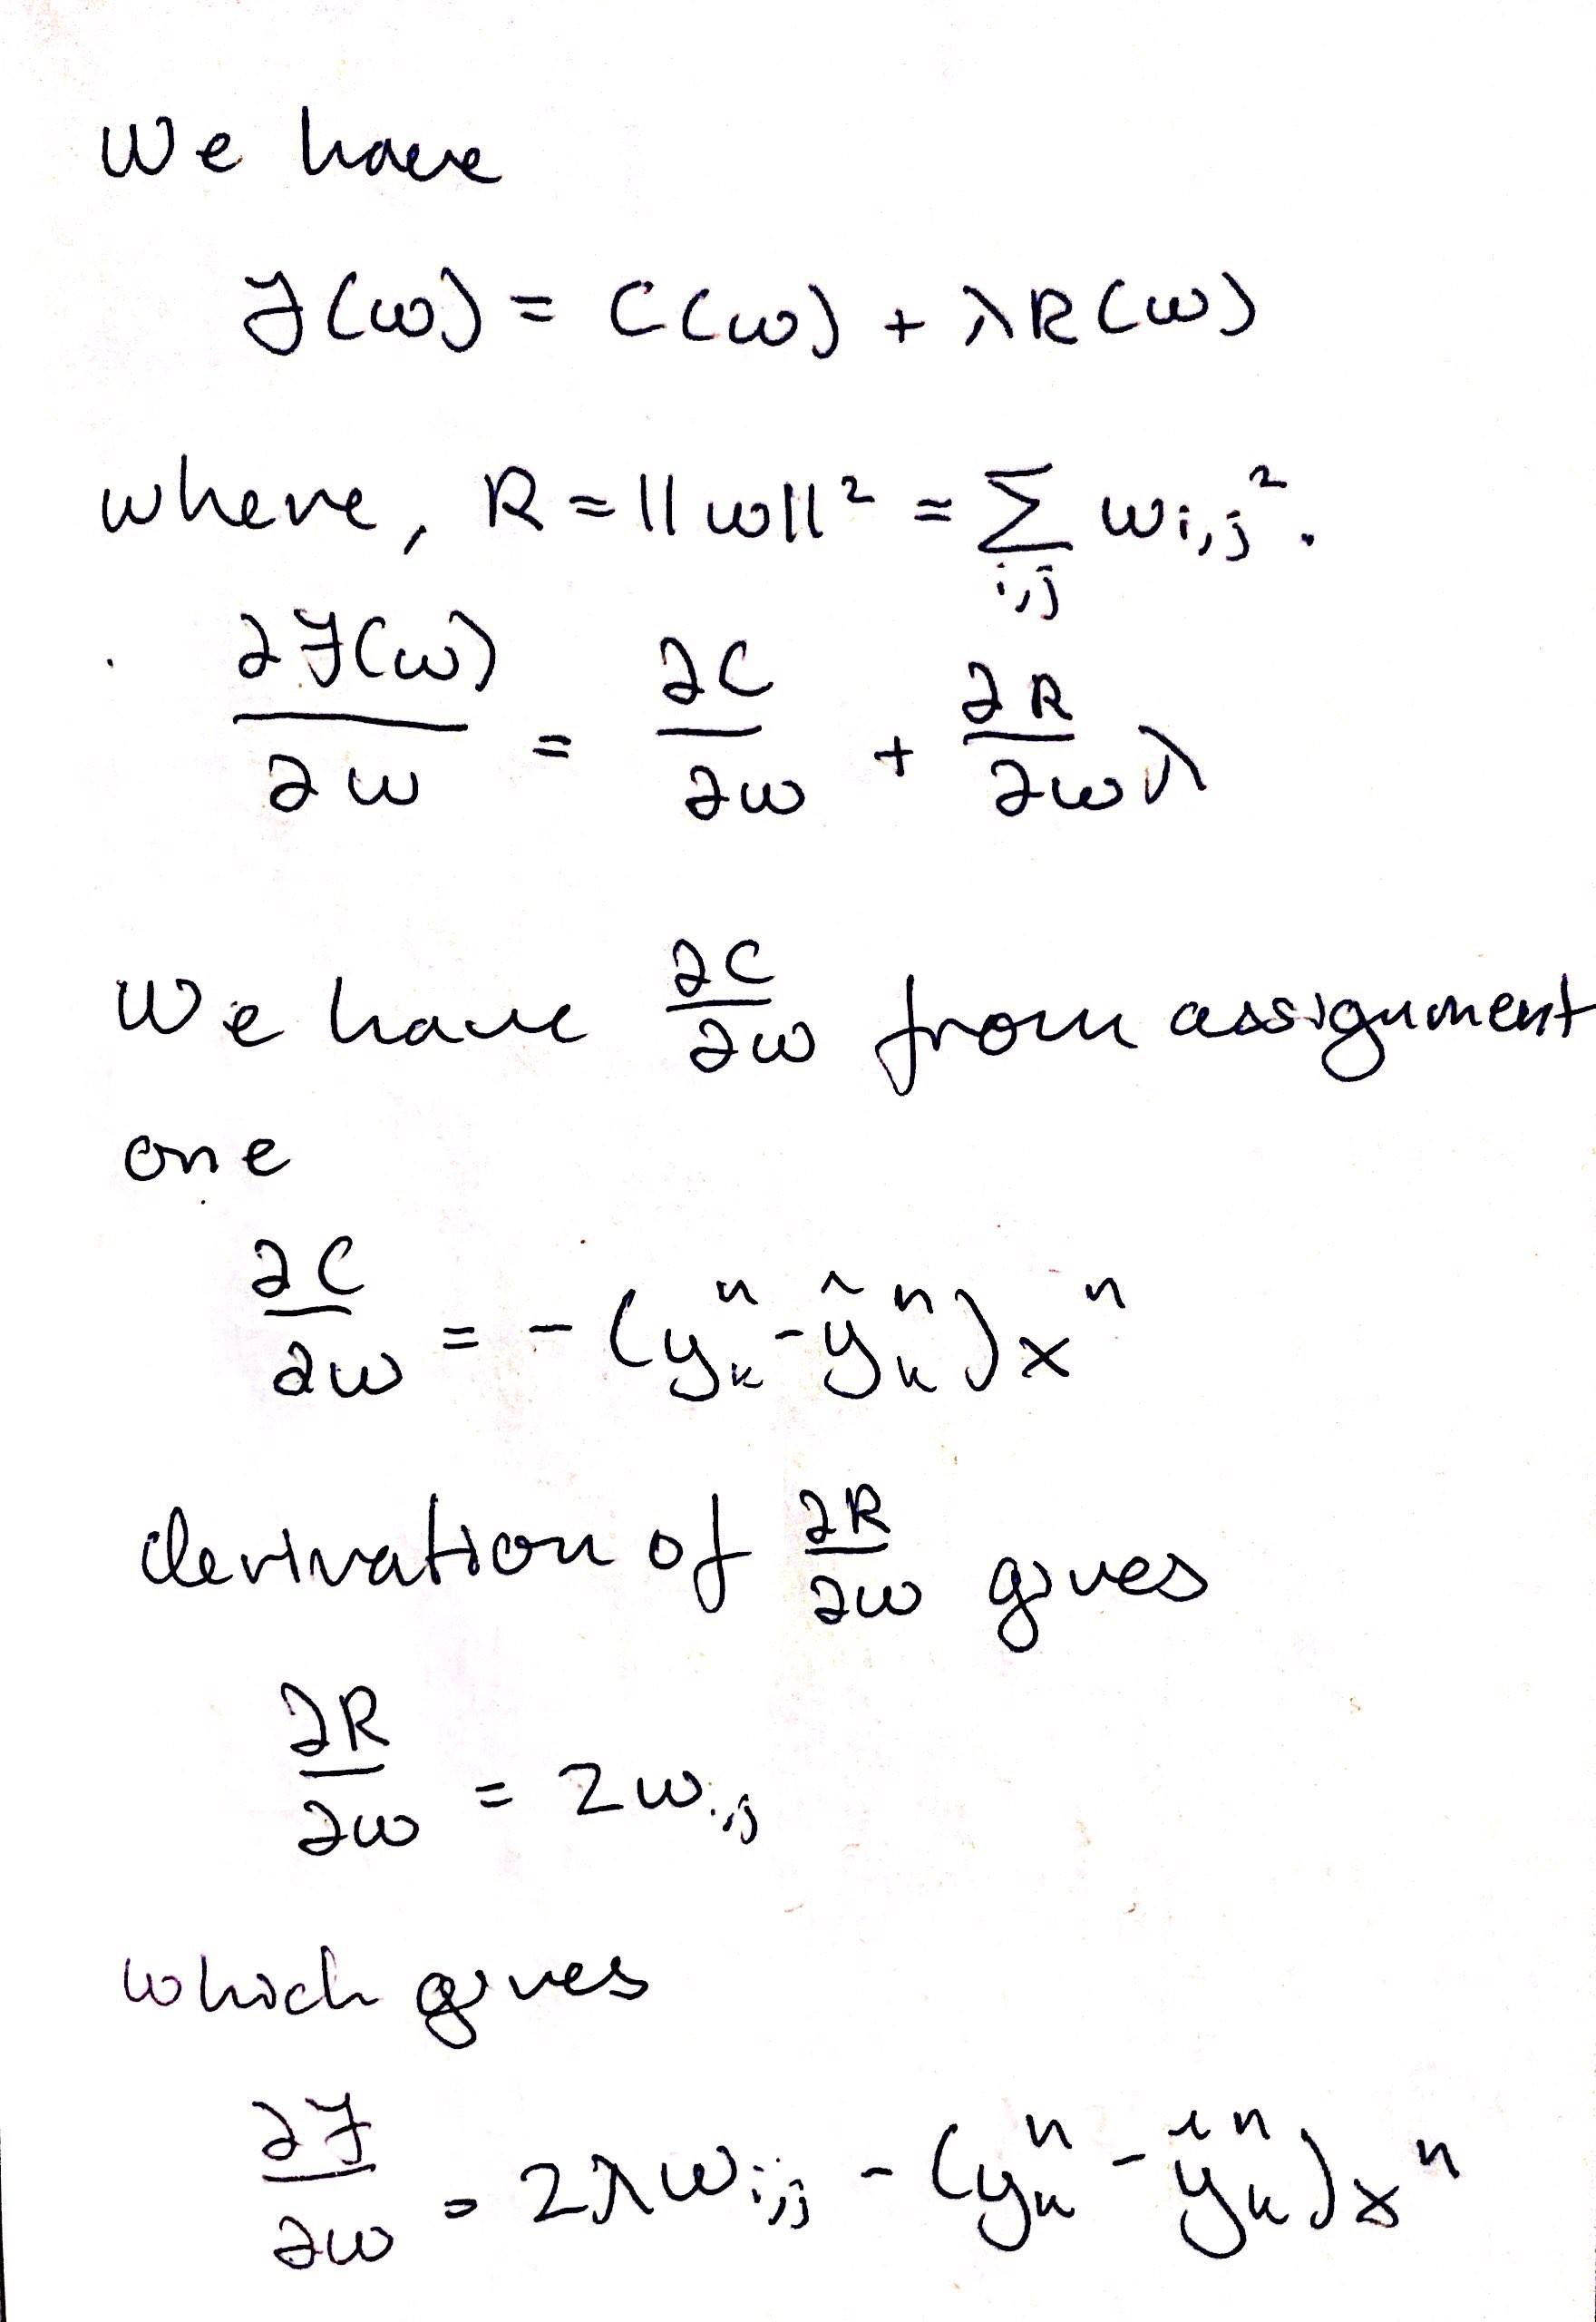 We have
J(w) = C(w) + λR(w)
where, R = ||w||² = Σ_{i,j} w_{i,j}².
∂J(w)/∂w = ∂C/∂w + ∂R/∂w λ
We have ∂C/∂w from assignment
one
∂C/∂w = -(y_k^n - ŷ_k^n)x^n
derivation of ∂R/∂w gives
∂R/∂w = 2w_{i,j}
which gives
∂J/∂w = 2λw_{i,j} - (y_k^n - ŷ_k^n)x^n